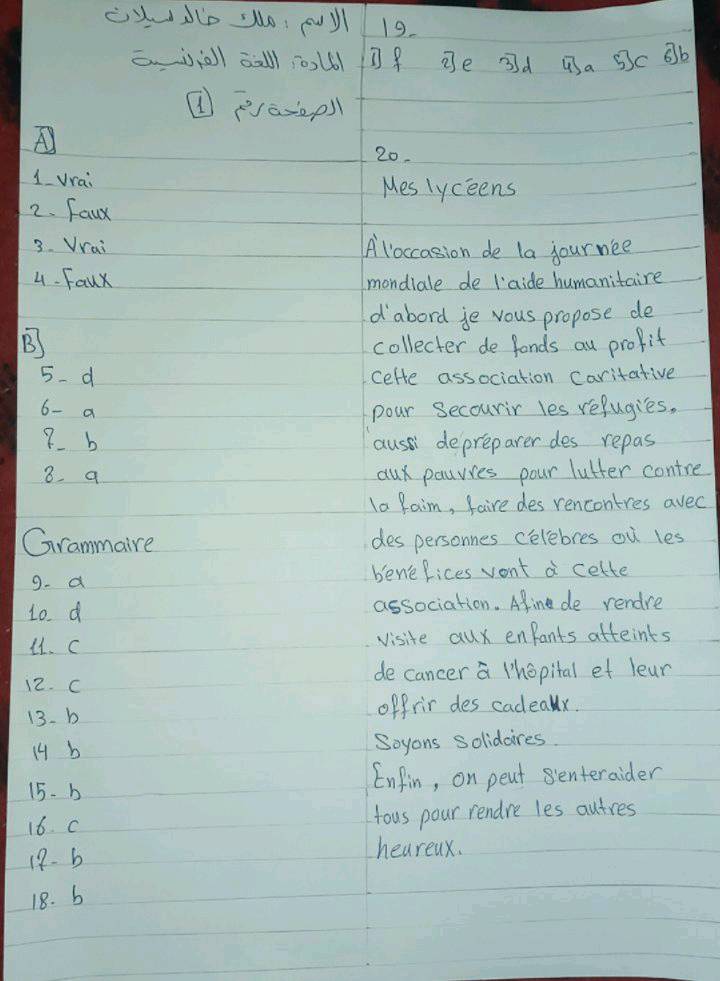 الاسم: ملك خالد سيلات
المادة: اللغة الفرنسية
الصفحة رقم 1
A]
1- Vrai
2- Faux
3- Vrai
4- Faux
B]
5- d
6- a
7- b
8- a
Grammaire
9- a
10- d
11. c
12. c
13- b
14 b
15- b
16. c
17- b
18- b
19-
1] f 2] e 3] d 4] a 5] c 6] b
20-
Mes lycéens
À l'occasion de la journée
mondiale de l'aide humanitaire
d'abord je vous propose de
collecter de fonds au profit
cette association caritative
pour secourir les réfugiés.
aussi de préparer des repas
aux pauvres pour lutter contre
la faim, faire des rencontres avec
des personnes célèbres où les
bénéfices vont à cette
association. Afine de rendre
visite aux enfants atteints
de cancer à l'hôpital et leur
offrir des cadeaux.
Soyons solidaires.
Enfin, on peut s'enteraider
tous pour rendre les autres
heureux.